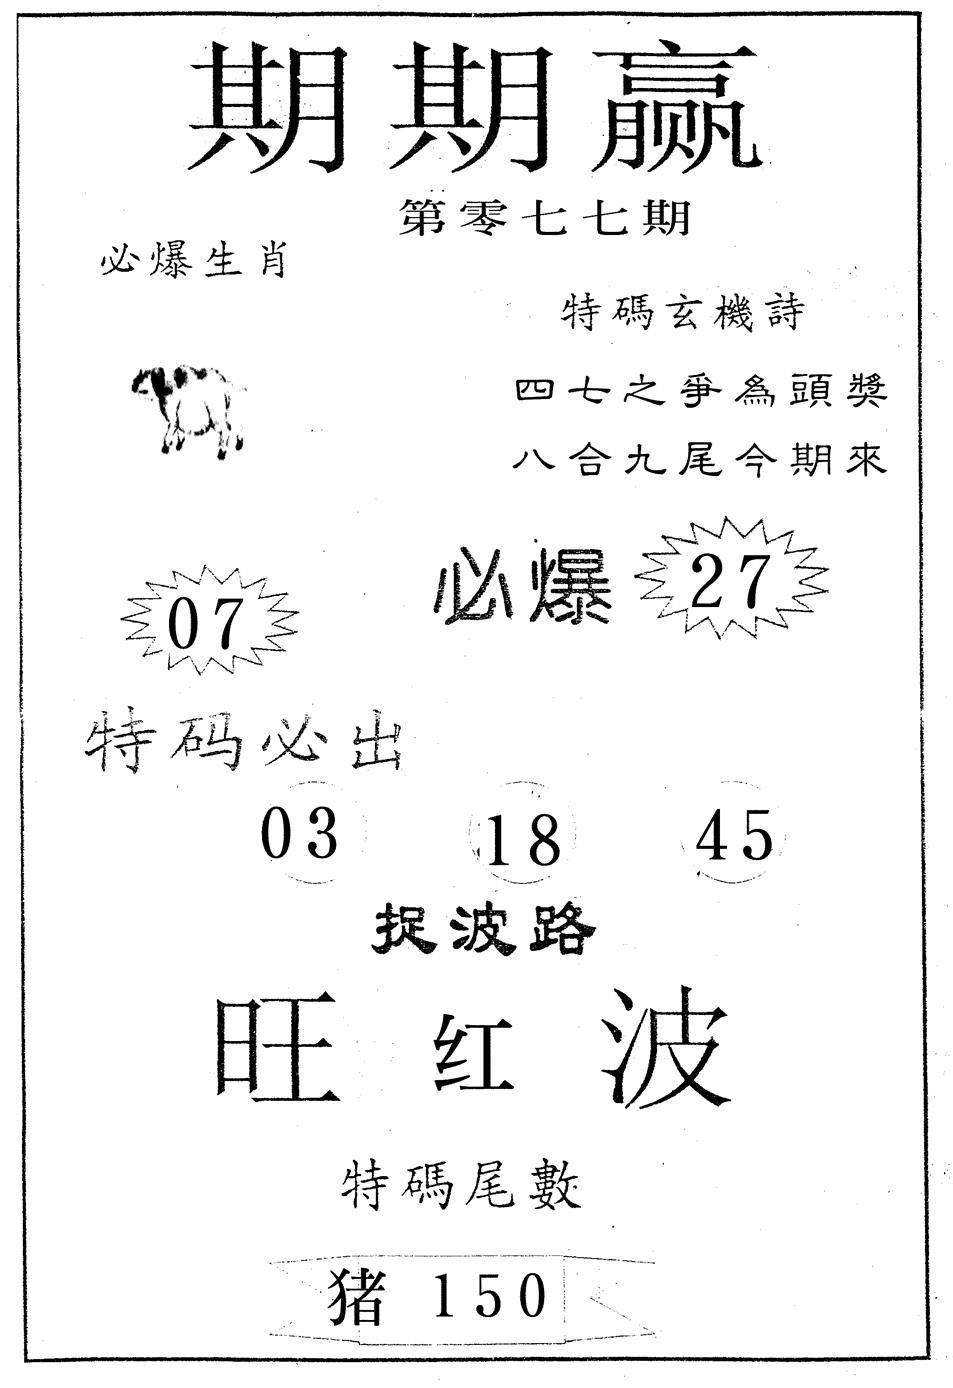 期期赢
第零七七期
必爆生肖
特碼玄機詩
四七之爭為頭獎
八合九尾今期來
必爆 27
07
特码必出
03 18 45
捉波路
旺红波
特碼尾數
猪 150